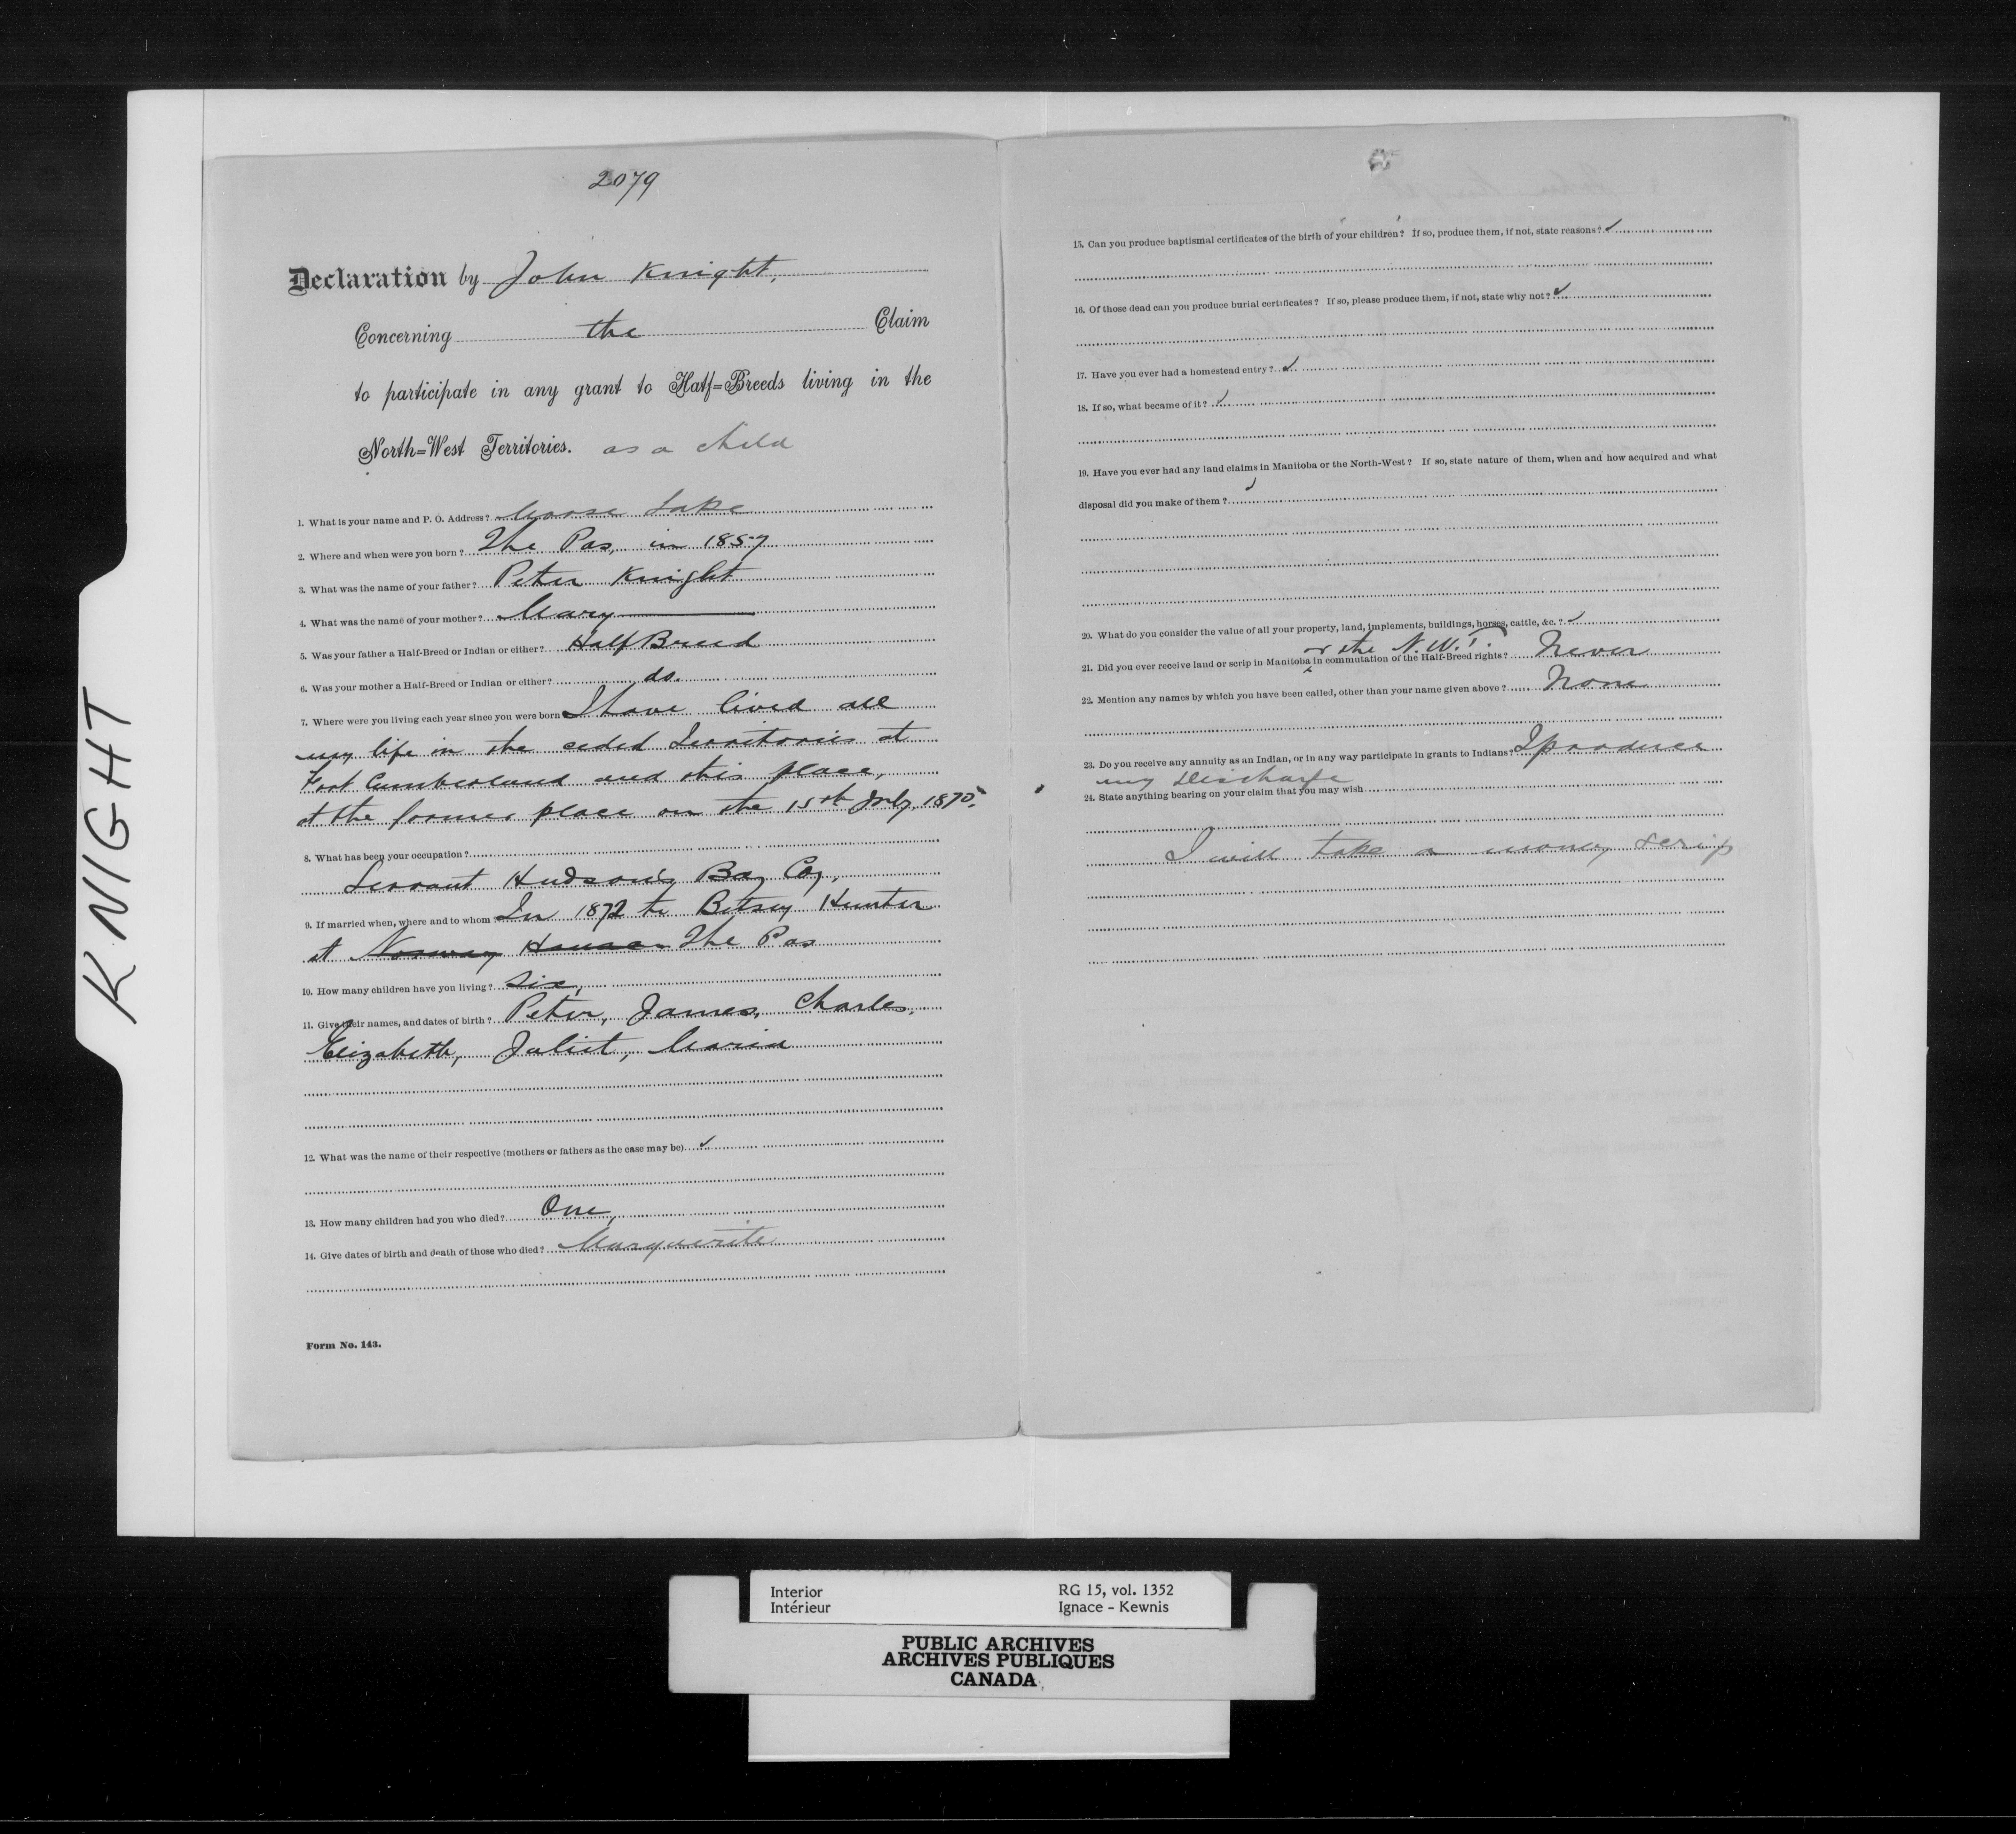 KNIGHT
2079
Declaration by John Knight,
Concerning the Claim
to participate in any grant to Half=Breeds living in the
North=West Territories. as a child
1. What is your name and P. O. Address? Moose Lake
2. Where and when were you born? The Pas, in 1857
3. What was the name of your father? Peter Knight
4. What was the name of your mother? Mary
5. Was your father a Half-Breed or Indian or either? Half Breed
6. Was your mother a Half-Breed or Indian or either? do.
7. Where were you living each year since you were born I have lived all
my life in the ceded Territories at
Fort Cumberland and this place,
at the former place on the 15th July, 1870.
8. What has been your occupation?
Servant Hudson's Bay Coy,
9. If married when, where and to whom In 1872 to Betsey Hunter
at Norway House The Pas
10. How many children have you living? Six,
11. Give their names, and dates of birth? Peter, James, Charles,
Elizabeth, Juliet, Maria
12. What was the name of their respective (mothers or fathers as the case may be) ✓
13. How many children had you who died? One,
14. Give dates of birth and death of those who died? Marguerite
Form No. 143.
15. Can you produce baptismal certificates of the birth of your children? If so, produce them, if not, state reasons? ✓
16. Of those dead can you produce burial certificates? If so, please produce them, if not, state why not? ✓
17. Have you ever had a homestead entry? ✓
18. If so, what became of it? ✓
19. Have you ever had any land claims in Manitoba or the North-West? If so, state nature of them, when and how acquired and what
disposal did you make of them? ✓
20. What do you consider the value of all your property, land, implements, buildings, horses, cattle, &c.? ✓
or the N.W.T.
21. Did you ever receive land or scrip in Manitoba ^ in commutation of the Half-Breed rights? Never
22. Mention any names by which you have been called, other than your name given above? None
23. Do you receive any annuity as an Indian, or in any way participate in grants to Indians? I produce
my Discharge
24. State anything bearing on your claim that you may wish
I will take a money scrip
Interior
Intérieur
RG 15, vol. 1352
Ignace - Kewnis
PUBLIC ARCHIVES
ARCHIVES PUBLIQUES
CANADA